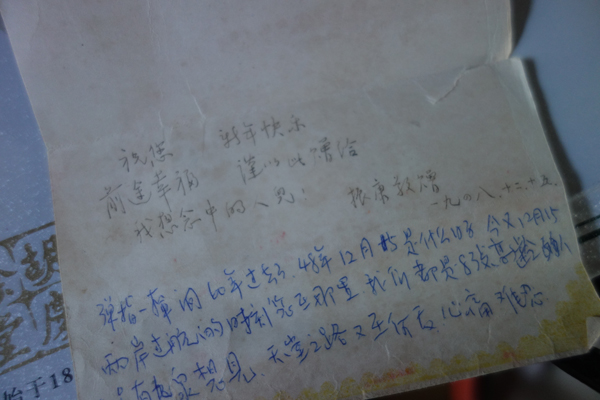 祝您 新年快乐
前途幸福 谨以此赠给
我想念中的人儿! 振京敬赠
一九四八.十二.十五.
弹指一挥间60年过去了 48年12月15是什么日子 今又12月15
两岸通航的时刻您在那里 我们都是8
相见 天堂之路又在何方 心痛难忍
始于18